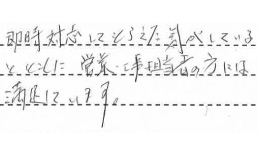 即時対応してもらえた為べしている
ところに 営業・工事担当者の方には
満足しています。